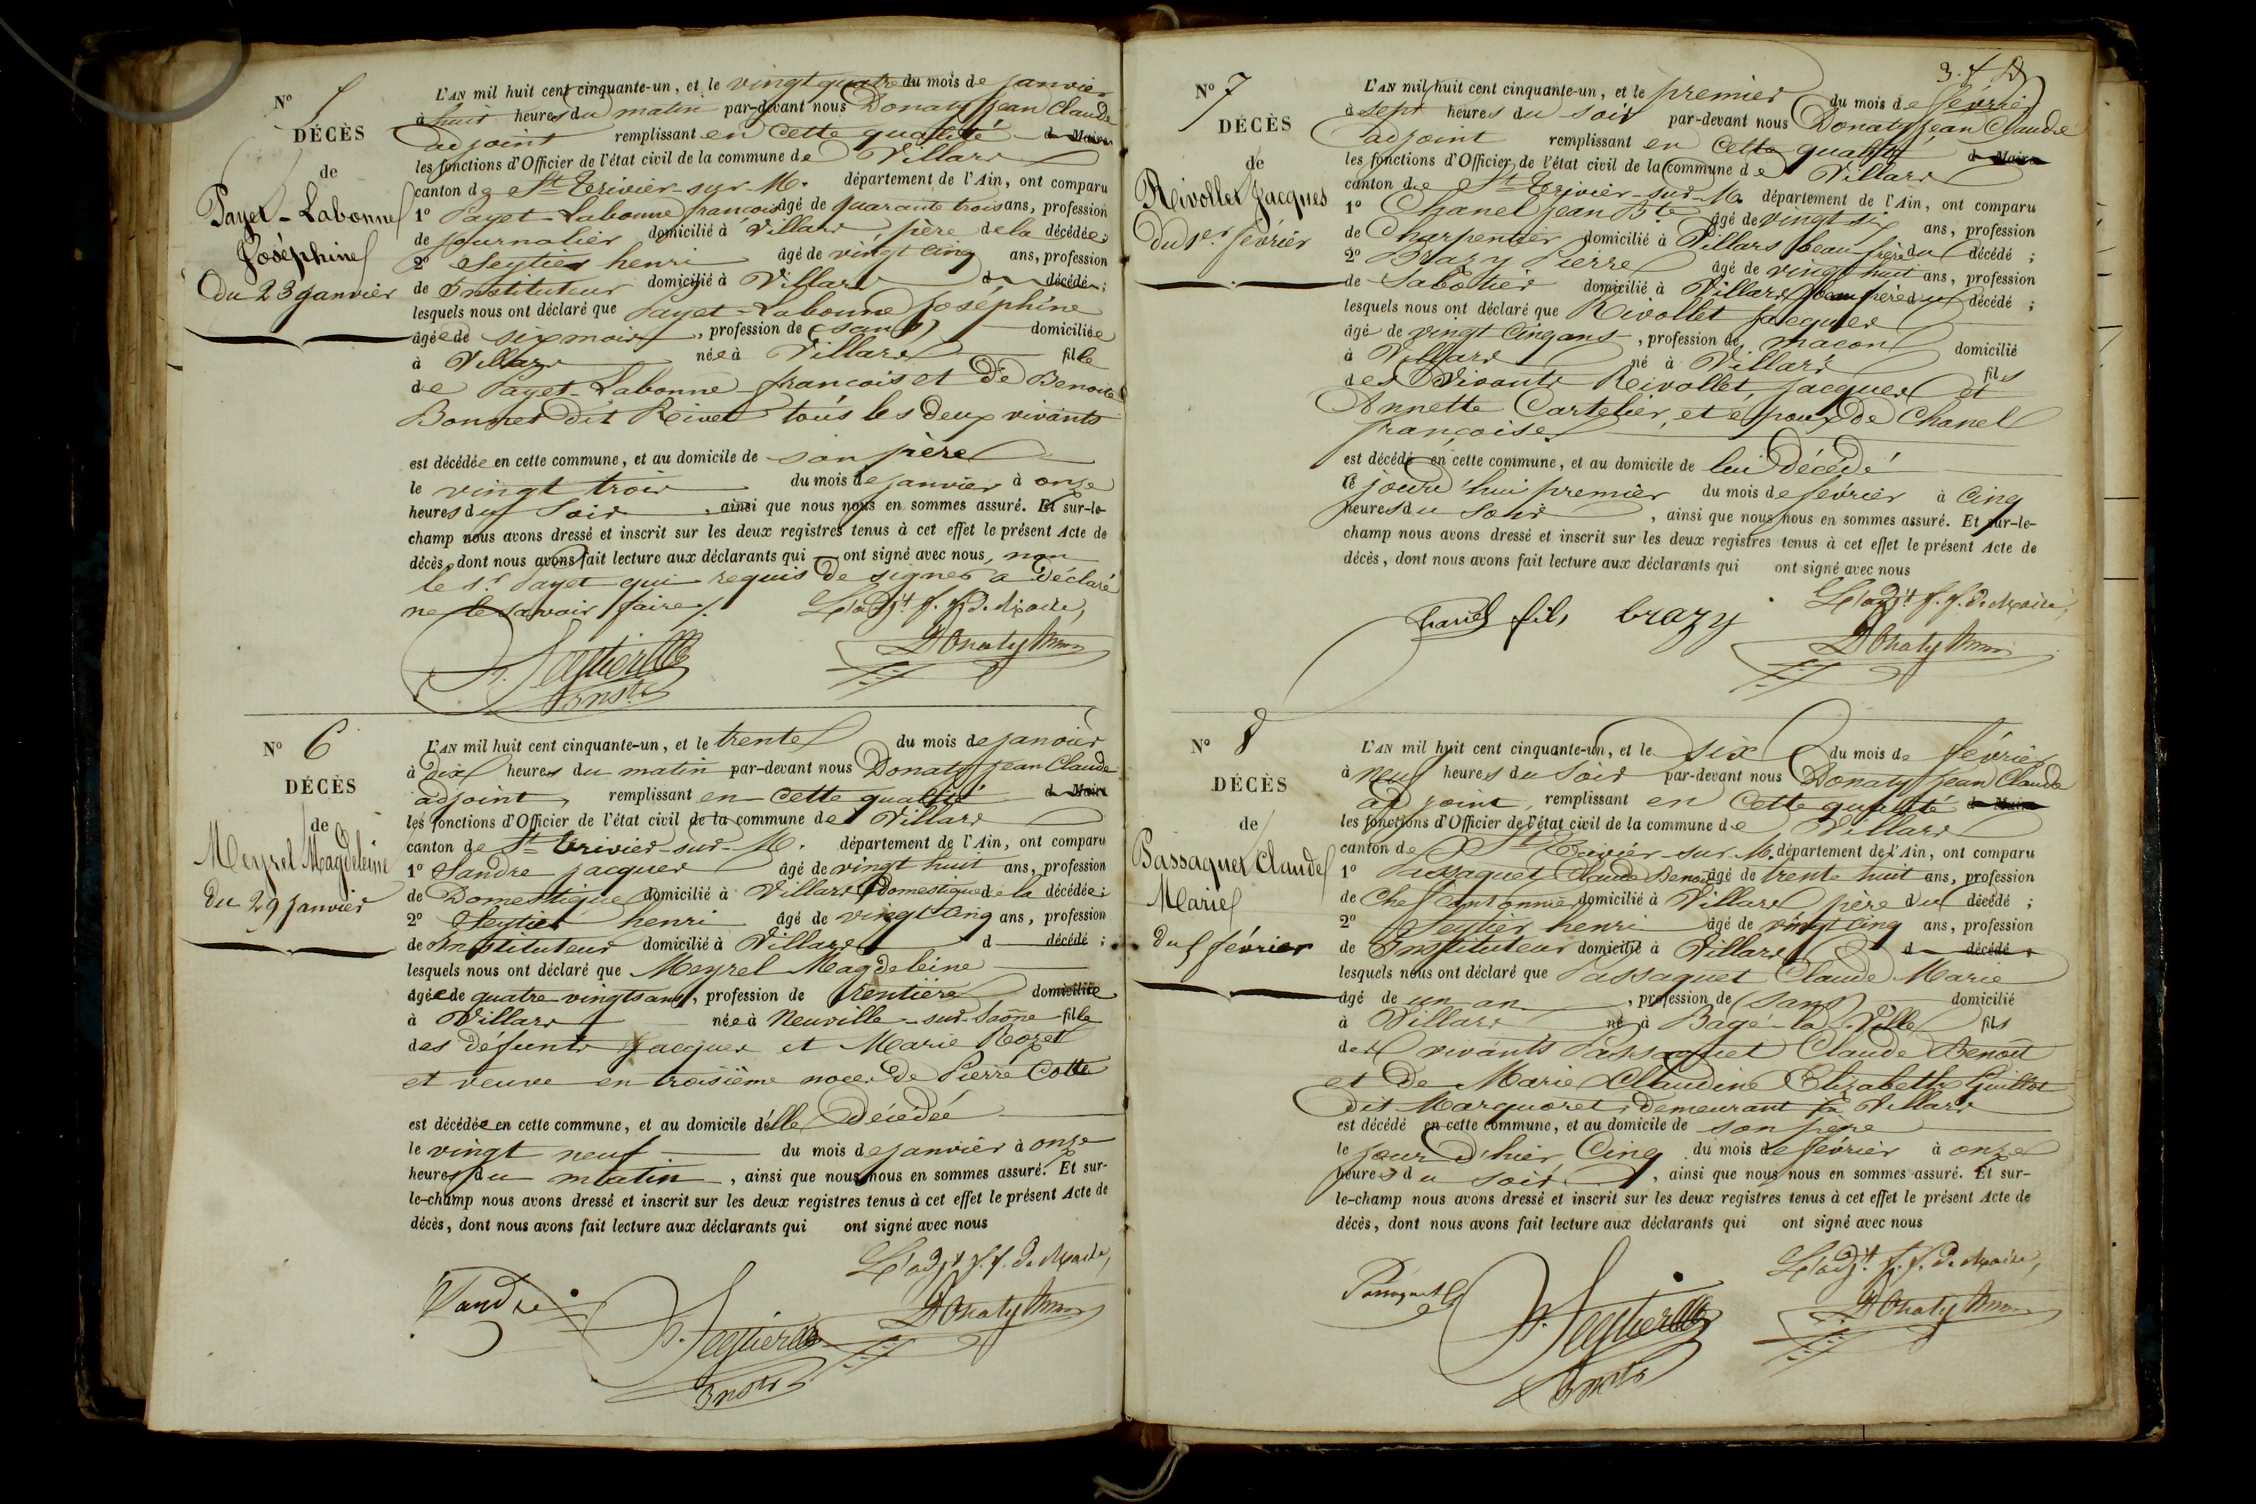 N° 5
DÉCÈS
de
Payet-Labonne
Joséphine
Du 23 Janvier
L'AN mil huit cent cinquante-un, et le vingt quatre du mois de janvier
à huit heures du matin par-devant nous Donaty Jean Claude
adjoint remplissant en cette qualité d Maire
les fonctions d'Officier de l'état civil de la commune de Villars
canton de St Trivier-sur-M. département de l'Ain, ont comparu
1° Payet-Labonne françois âgé de quarante trois ans, profession
de journalier domicilié à Villars, père de la décédée;
2° Seytier henri âgé de vingt cinq ans, profession
de Instituteur domicilié à Villars d décédé;
lesquels nous ont déclaré que Payet-Labonne Joséphine
âgée de six mois, profession de (sans) domiciliée
à Villars née à Villars fille
de Payet-Labonne françois et de Benoite
Bonnet dit Rivet tous les deux vivants
est décédée en cette commune, et au domicile de son père
le vingt trois du mois de janvier à onze
heures du soir, ainsi que nous nous en sommes assuré. Et sur-le-
champ nous avons dressé et inscrit sur les deux registres tenus à cet effet le présent Acte de
décès, dont nous avons fait lecture aux déclarants qui ont signé avec nous, non
le sr Payet qui requis de signer a déclaré
ne le savoir faire.
L'adjt f. f. de Maire,
H. Seytier
Instr
Donaty
N° 6
DÉCÈS
de
Meyrel Magdeleine
du 29 janvier
L'AN mil huit cent cinquante-un, et le trente du mois de janvier
à dix heures du matin par-devant nous Donaty Jean Claude
adjoint, remplissant en cette qualité d Maire
les fonctions d'Officier de l'état civil de la commune de Villars
canton de St Trivier-sur-M. département de l'Ain, ont comparu
1° Sandre jacques âgé de vingt huit ans, profession
de Domestique domicilié à Villars domestique de la décédée;
2° Seytier henri âgé de vingt cinq ans, profession
de Instituteur domicilié à Villars d décédé;
lesquels nous ont déclaré que Meyrel Magdeleine
âgée de quatre vingts ans, profession de rentière domiciliée
à Villars née à Neuville-sur-Saône fille
des défunts Jacques et Marie Rozet
et veuve en troisième noces de Pierre Cotte
est décédée en cette commune, et au domicile d'elle Décédée
le vingt neuf du mois de janvier à onze
heures du matin, ainsi que nous nous en sommes assuré. Et sur-
le-champ nous avons dressé et inscrit sur les deux registres tenus à cet effet le présent Acte de
décès, dont nous avons fait lecture aux déclarants qui ont signé avec nous
L'adjt f. f. de Maire,
Sandre
H. Seytier
Instr
Donaty
N° 7
DÉCÈS
de
Rivollet Jacques
Du 1er février
L'AN mil huit cent cinquante-un, et le premier du mois de février
à sept heures du soir par-devant nous Donaty Jean Claude
adjoint remplissant en cette qualité d Maire
les fonctions d'Officier de l'état civil de la commune de Villars
canton de St Trivier-sur-M. département de l'Ain, ont comparu
1° Chanel Jean Bte âgé de vingt six ans, profession
de Charpentier domicilié à Villars beau-frère du décédé;
2° Brazy Pierre âgé de vingt huit ans, profession
de Sabotier domicilié à Villars beau frère du décédé;
lesquels nous ont déclaré que Rivollet Jacques
âgé de vingt cinq ans, profession de maçon domicilié
à Villars né à Villars fils
des Vivants Rivollet, Jacques et
Annette Cartelier, et époux de Chanel
françoise
est décédé en cette commune, et au domicile de lui Décédé
le jourd'hui premier du mois de février à cinq
heures du soir, ainsi que nous nous en sommes assuré. Et sur-le-
champ nous avons dressé et inscrit sur les deux registres tenus à cet effet le présent Acte de
décès, dont nous avons fait lecture aux déclarants qui ont signé avec nous
L'adjt f. f. de Maire,
Chanel fils brazy
Donaty
N° 8
DÉCÈS
de
Passaquet Claude
Marie
du 5 février
L'AN mil huit cent cinquante-un, et le six du mois de février
à neuf heures du soir par-devant nous Donaty Jean Claude
adjoint, remplissant en cette qualité d Maire
les fonctions d'Officier de l'état civil de la commune de Villars
canton de St Trivier-sur-M. département de l'Ain, ont comparu
1° Passaquet Claude Benoit âgé de trente huit ans, profession
de Chef cantonnier domicilié à Villars père du décédé;
2° Seytier henri âgé de vingt cinq ans, profession
de Instituteur domicilié à Villars d décédé;
lesquels nous ont déclaré que Passaquet Claude Marie
âgé de un an, profession de (sans) domicilié
à Villars né à Bagé-la-Ville fils
des vivants Passaquet Claude Benoit
et de Marie Claudine Elizabeth Guillot
dit Marquoret, demeurant à Villars
est décédé en cette commune, et au domicile de son père
le jour d'hier Cinq du mois de février à onze
heures du soir, ainsi que nous nous en sommes assuré. Et sur-
le-champ nous avons dressé et inscrit sur les deux registres tenus à cet effet le présent Acte de
décès, dont nous avons fait lecture aux déclarants qui ont signé avec nous
L'adjt f. f. de Maire,
Passaquet
H. Seytier
Instr
Donaty